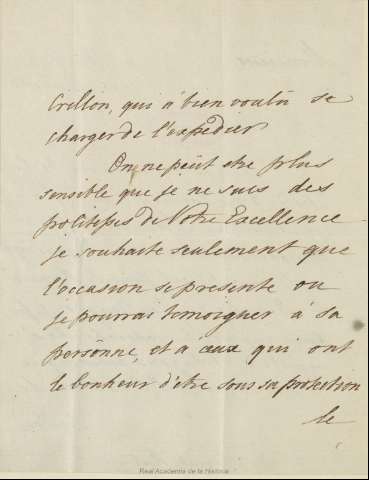 Crellon, qui à bien voulû se
charger de l'expedier
On ne peût etre plus
sensible que je ne suis des
politesses de Votre Excellence
je souhaite seulement que
l'occasion se presente ou
je pourrai temoigner à sa
persönne, et à ceux qui ont
le bonheur d'être sous sa protection
le
Real Academia de la Historia